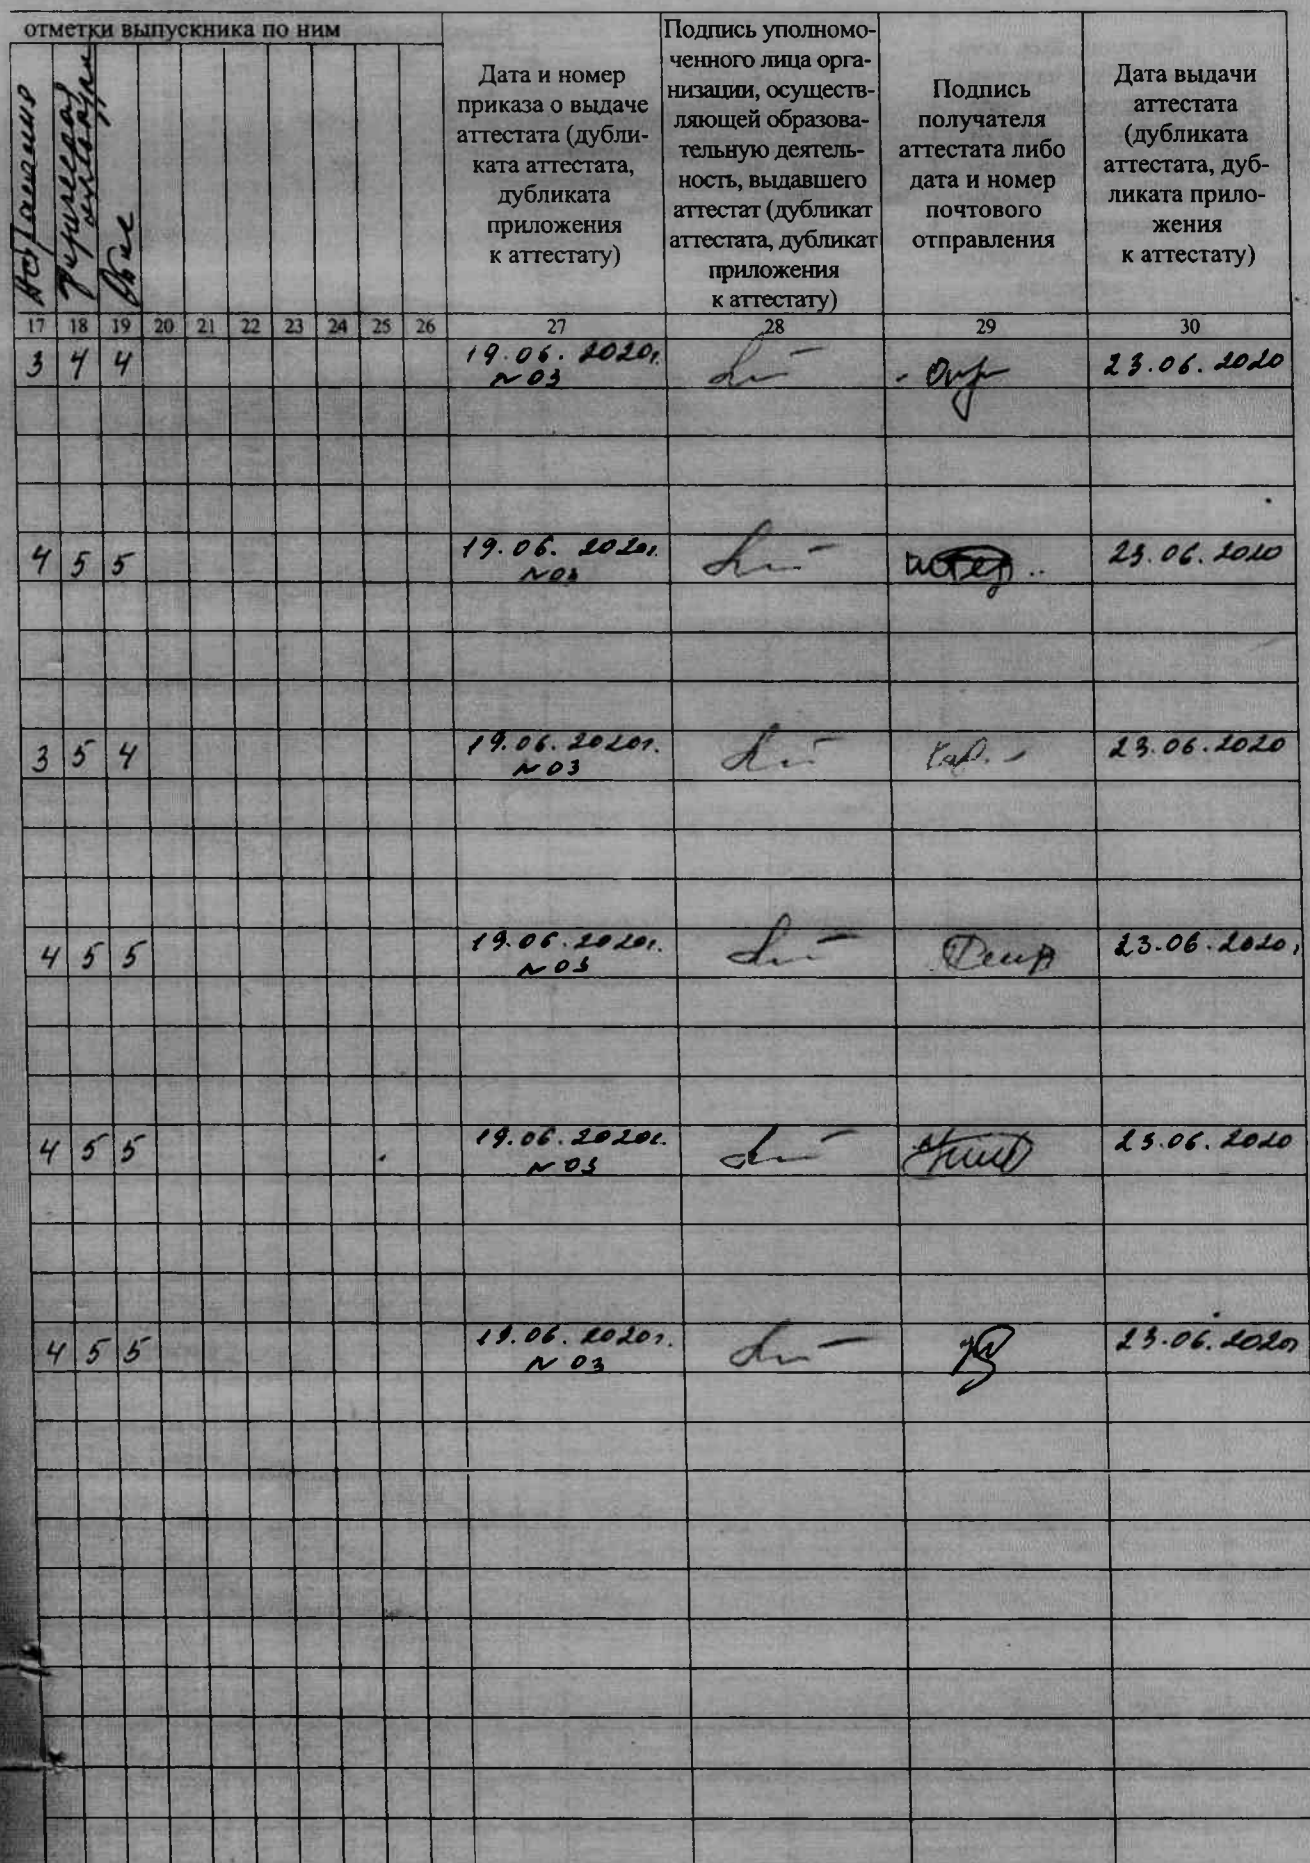 отметки выпускника по ним
Астрономия
Физическая культура
ОБЖ
Дата и номер
приказа о выдаче
аттестата (дубли-
ката аттестата,
дубликата
приложения
к аттестату)
Подпись уполномо-
ченного лица орга-
низации, осуществ-
ляющей образова-
тельную деятель-
ность, выдавшего
аттестат (дубликат
аттестата, дубликат
приложения
к аттестату)
Подпись
получателя
аттестата либо
дата и номер
почтового
отправления
Дата выдачи
аттестата
(дубликата
аттестата, дуб-
ликата прило-
жения
к аттестату)
17 18 19 20 21 22 23 24 25 26 27 28 29 30
3 4 4 19.06.2020г. 23.06.2020
№ 03
4 5 5 19.06.2020г. 23.06.2020
№ 03
3 5 4 19.06.2020г. 23.06.2020
№ 03
4 5 5 19.06.2020г. 23.06.2020г
№ 03
4 5 5 19.06.2020г. 23.06.2020
№ 03
4 5 5 19.06.2020г. 23.06.2020г
№ 03